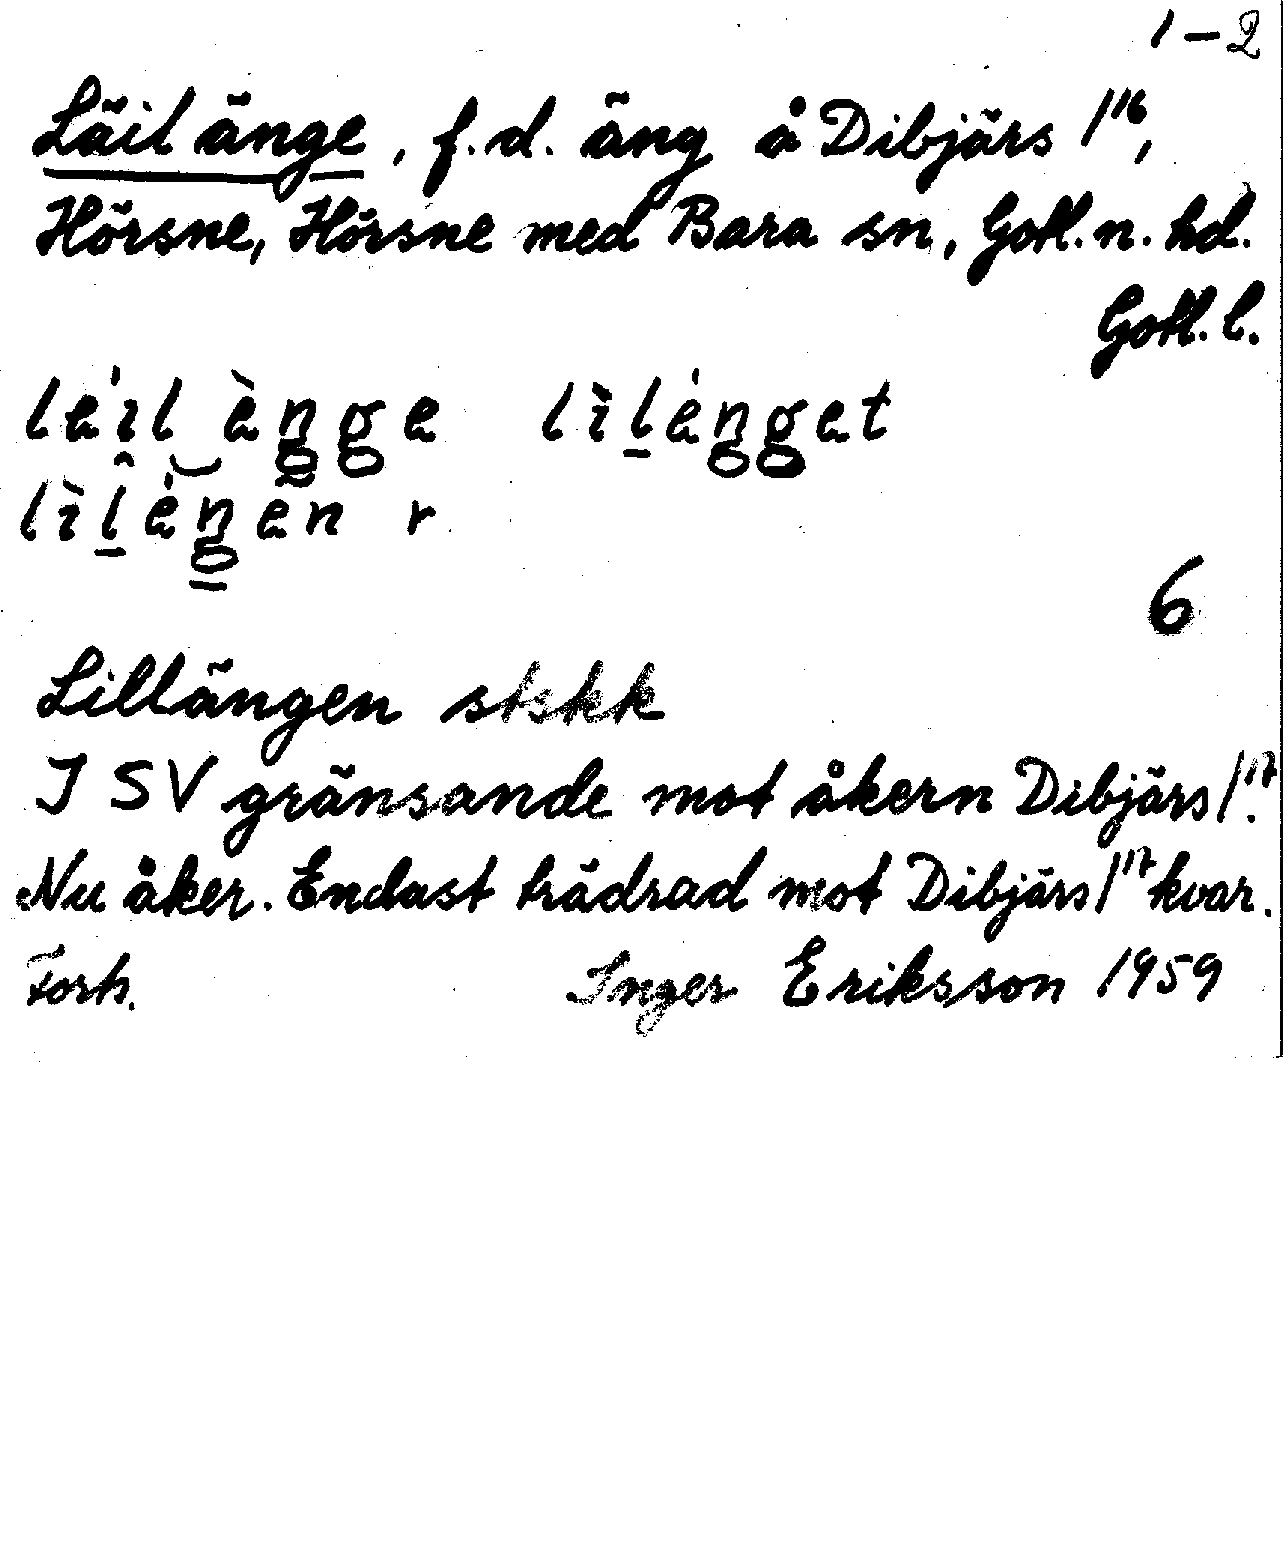 1-2
Läil änge, f.d. äng å Dibjärs 1¹⁶,
Hörsne, Hörsne med Bara sn, Gotl. n. hd.
Gotl. l.
leil èngge lìlenget
lìlengen r
6
Lillängen stskk
I SV gränsande mot åkern Dibjärs 1¹⁷.
Nu åker. Endast trädrad mot Dibjärs 1¹⁷ kvar.
Forts. Inger Eriksson 1959